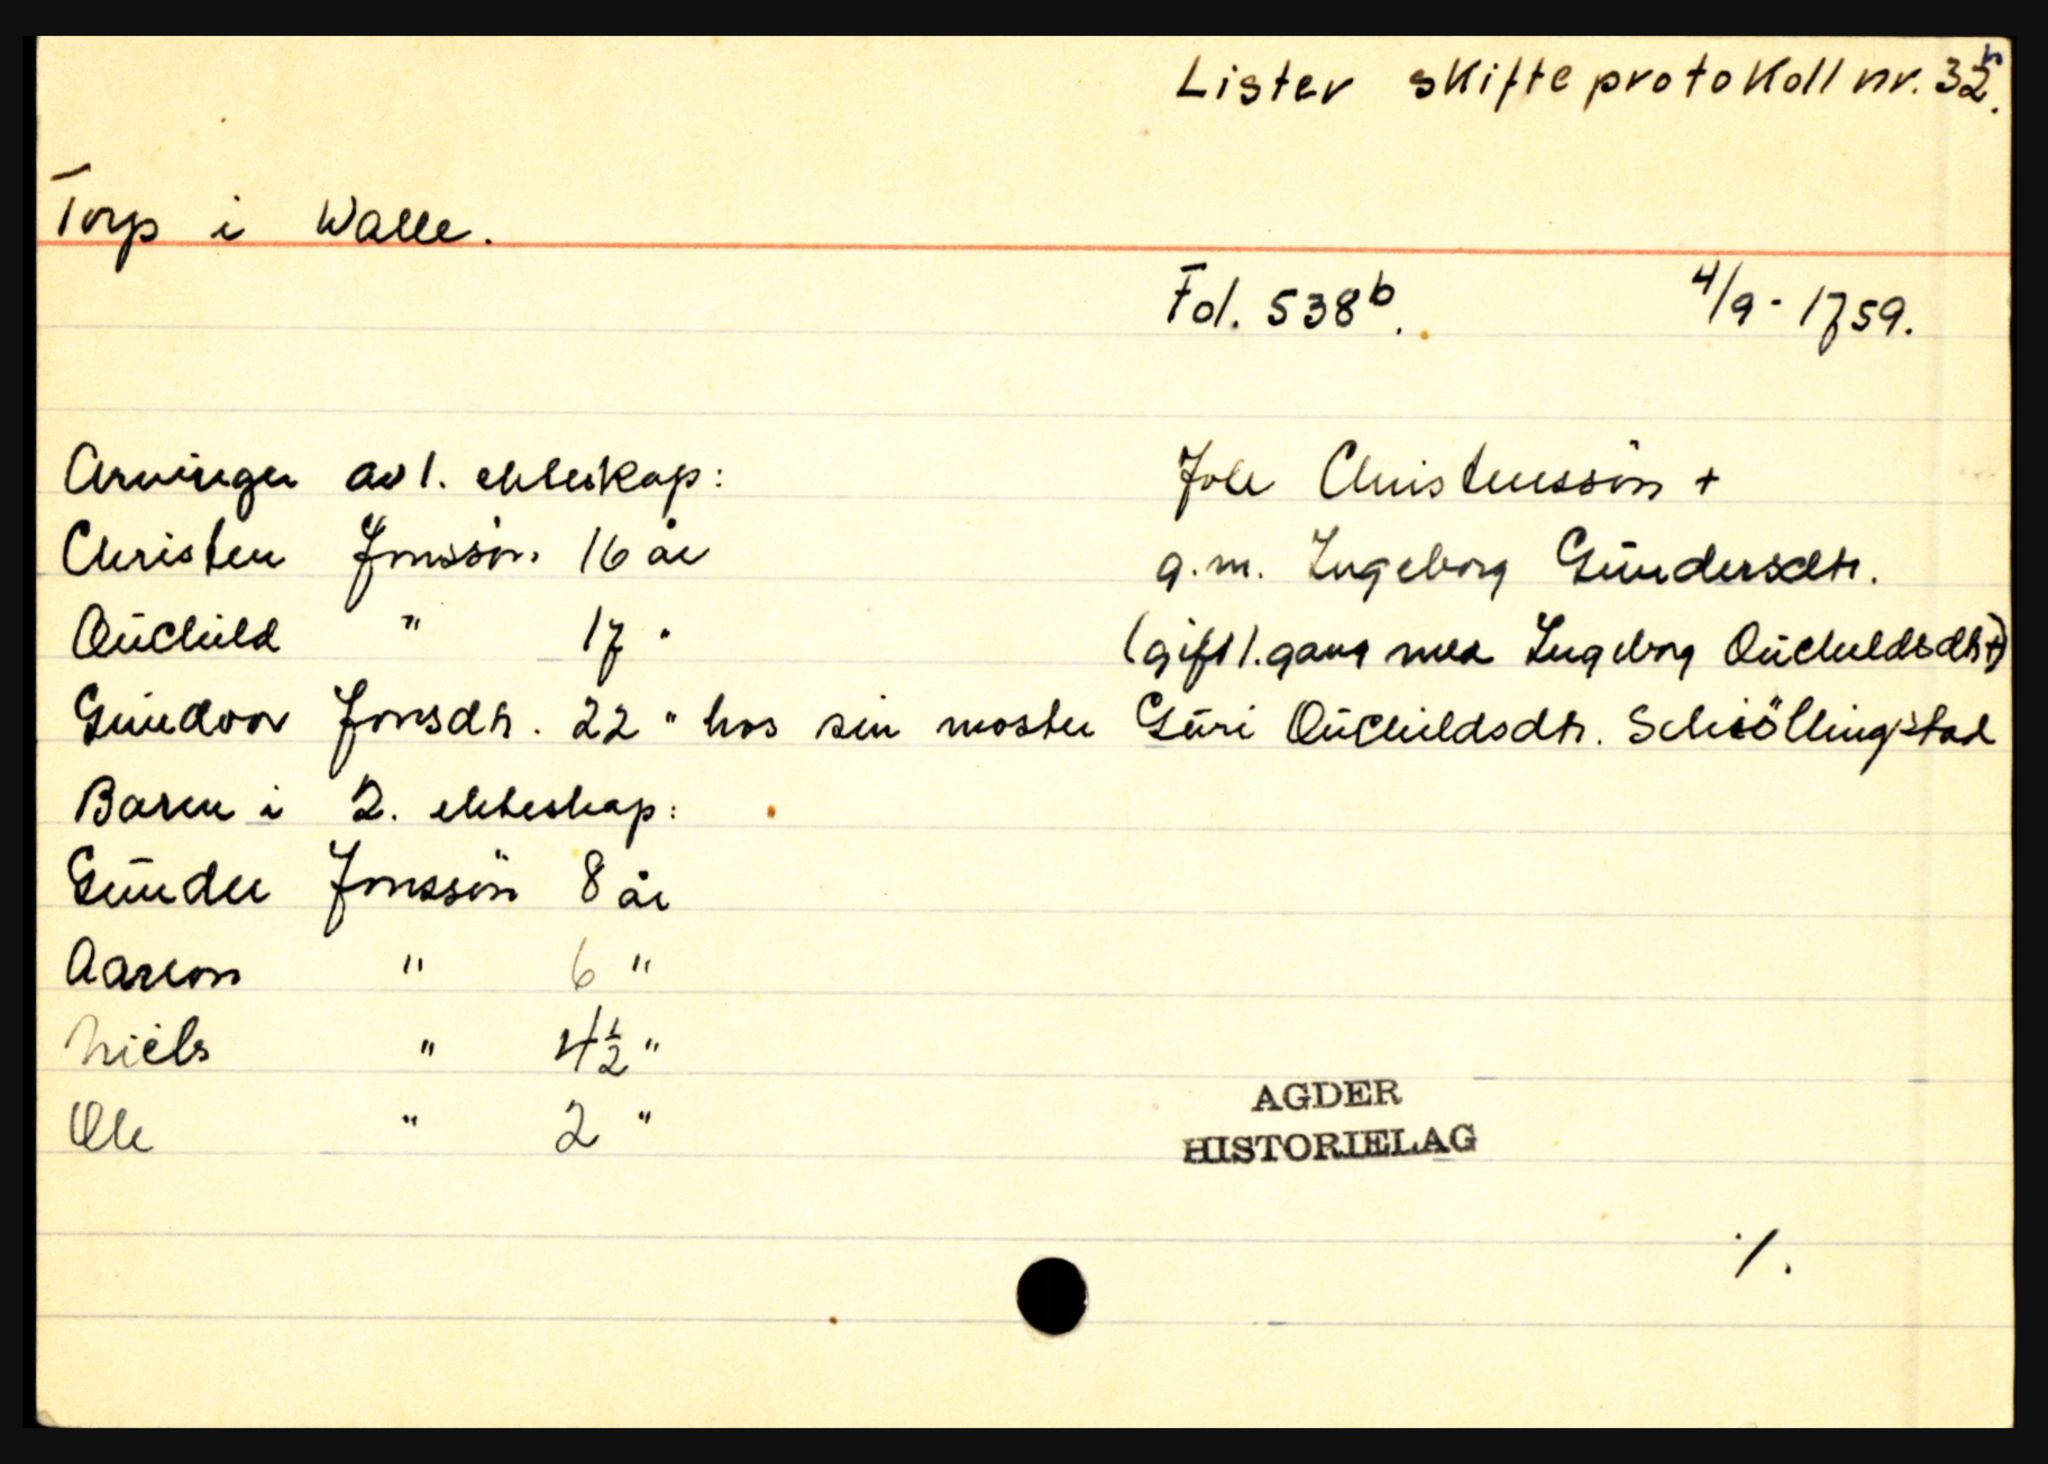 Lister skifteprotokoll nr. 32 b.
Torp i Walle.
Fol. 538b. 4/9 - 1759.
Arvinger av 1. ekteskap: Jole Christenssön +
Christen Jonssön. 16 år g.m. Ingeborg Gündersdtr.
Oüchild " 17 " (gift 1. gang med Ingeborg Oüchildsdtr +)
Gündvor Jonsdtr. 22 " hos sin moster Güri Oüchildsdtr. Schiöllingstad
Barn i 2. ekteskap:
Günder Jonssön 8 år
Aanon " 6 "
Niels " 4½ "
Ole " 2 "
AGDER
HISTORIELAG
./.